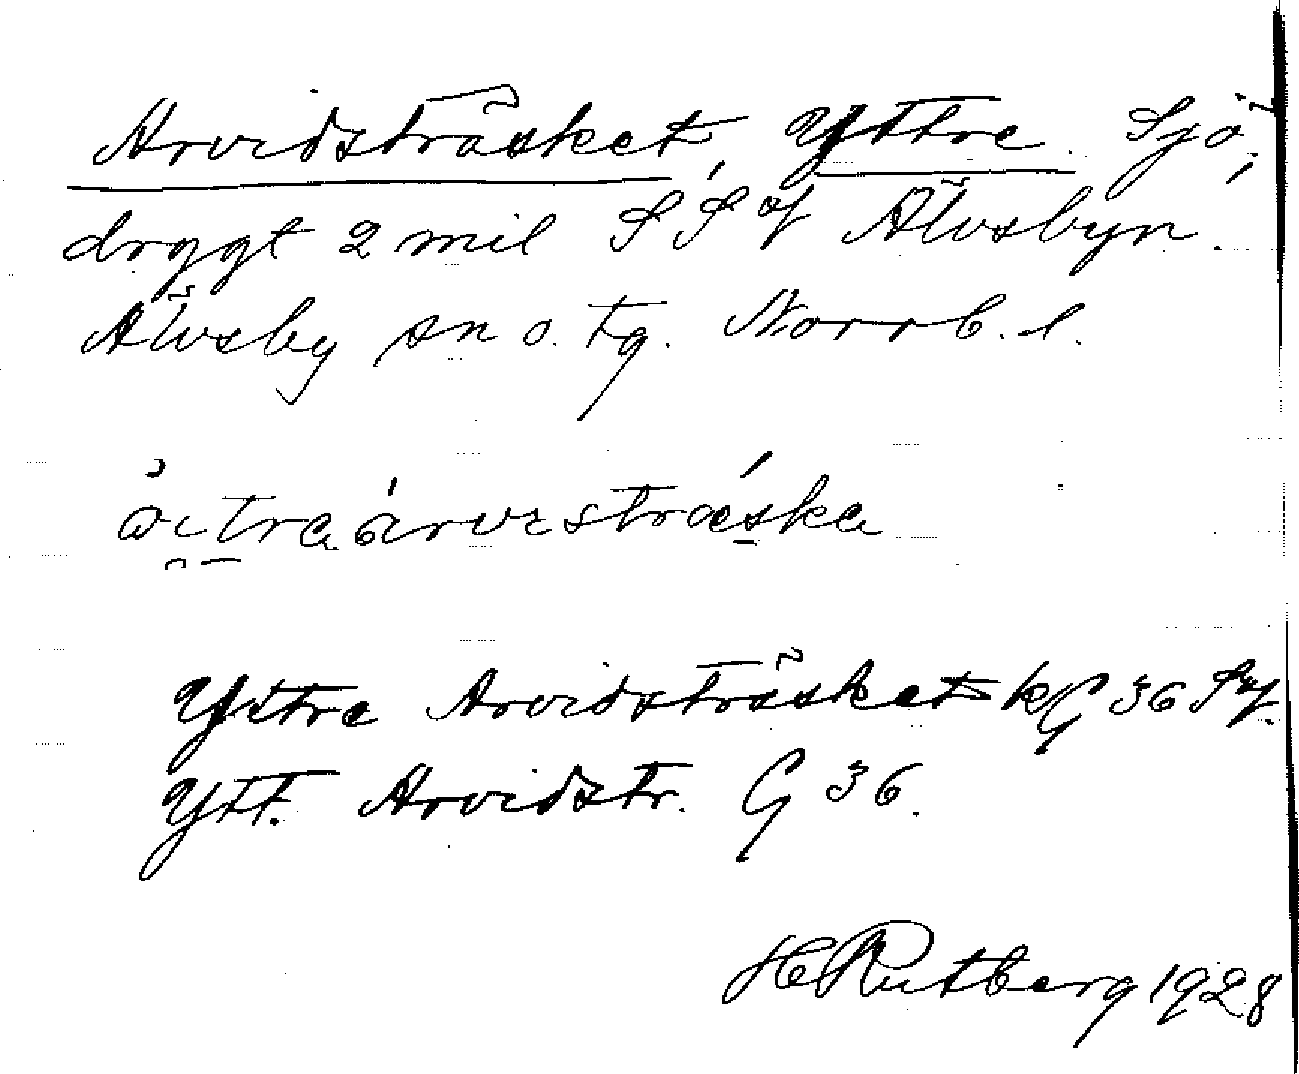 Arvidsträsket, Yttre. Sjö,
drygt 2 mil S S of Älvsbyn.
Älvsby sn o. tg. Norrb. l.
Yttre Arvidsträsket kG 36 Sy.
Ytt. Arvidstr. G 36.
H Rutberg 1928